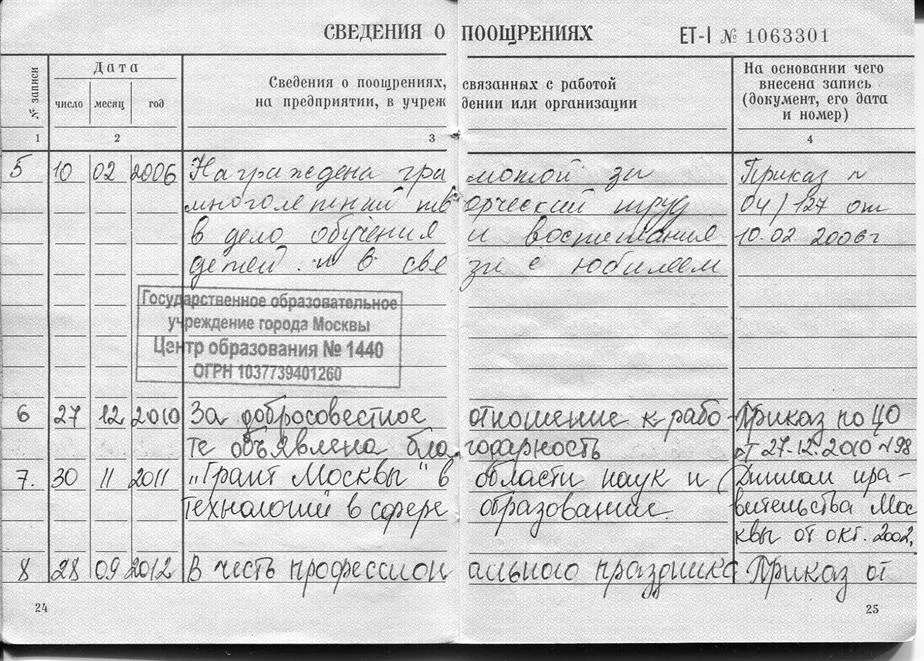 СВЕДЕНИЯ О ПООЩРЕНИЯХ ЕТ-I № 1063301
№ записи
Дата
число месяц год
Сведения о поощрениях, связанных с работой
на предприятии, в учреждении или организации
На основании чего
внесена запись
(документ, его дата
и номер)
1 2 3 4
5 10 02 2006 Награждена грамотой за Приказ n
многолетний творческий труд 04/127 от
в дело обучения и воспитания 10.02 2006г
детей. и в связи с юбилеем
Государственное образовательное
учреждение города Москвы
Центр образования № 1440
ОГРН 1037739401260
6 27 12 2010 За добросовестное отношение к рабо- Приказ по ЦО
те объявлена благодарность от 27.12.2010 №98
7. 30 11 2011 „Грант Москвы" в области наук и Диплом пра-
технологий в сфере образования. вительства Мос
квы от окт. 2002,
8 28 09 2012 В честь профессионального праздника Приказ от
24 25